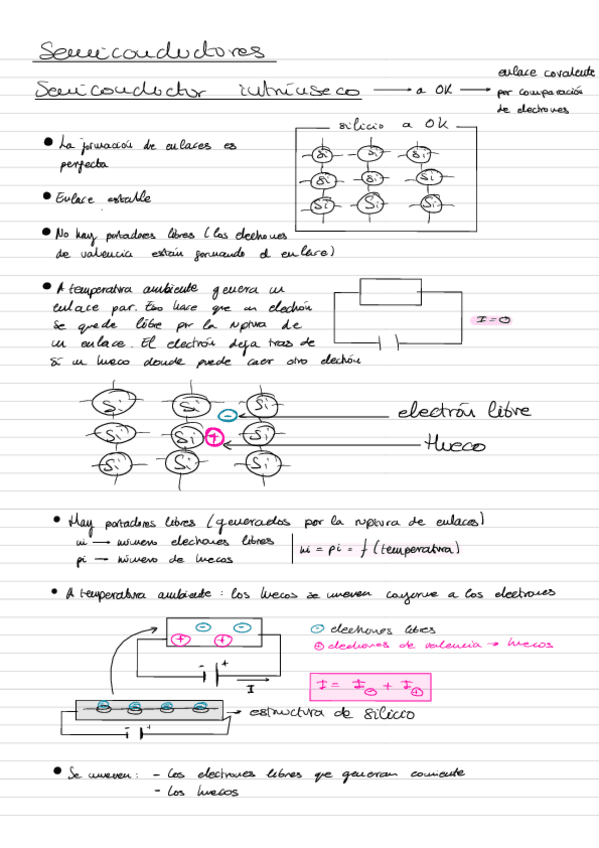 Semiconductores
Semiconductor intrínseco → a 0K → enlace covalente
por comparación
de electrones
silicio a 0K
• La formación de enlaces es
perfecta
Si Si Si
Si Si Si
Si Si Si
• Enlace estable
• No hay portadores libres (los electrones
de valencia están formando el enlace)
• A temperatura ambiente genera un
enlace par. Eso hace que un electrón
se quede libre por la ruptura de
un enlace. El electrón deja tras de
sí un hueco donde puede caer otro electrón
I = 0
Si Si Si
Si Si Si
Si Si Si
- electrón libre
+ Hueco
• Hay portadores libres (generados por la ruptura de enlaces)
ni → número electrones libres
pi → número de huecos
ni = pi = f (temperatura)
• A temperatura ambiente: los huecos se mueven
a los electrones
- electrones libres
+ electrones de valencia → huecos
- +
I
I = I⊖ + I⊕
→ estructura de silicio
- +
• Se mueven: - Los electrones libres que generan corriente
- Los huecos